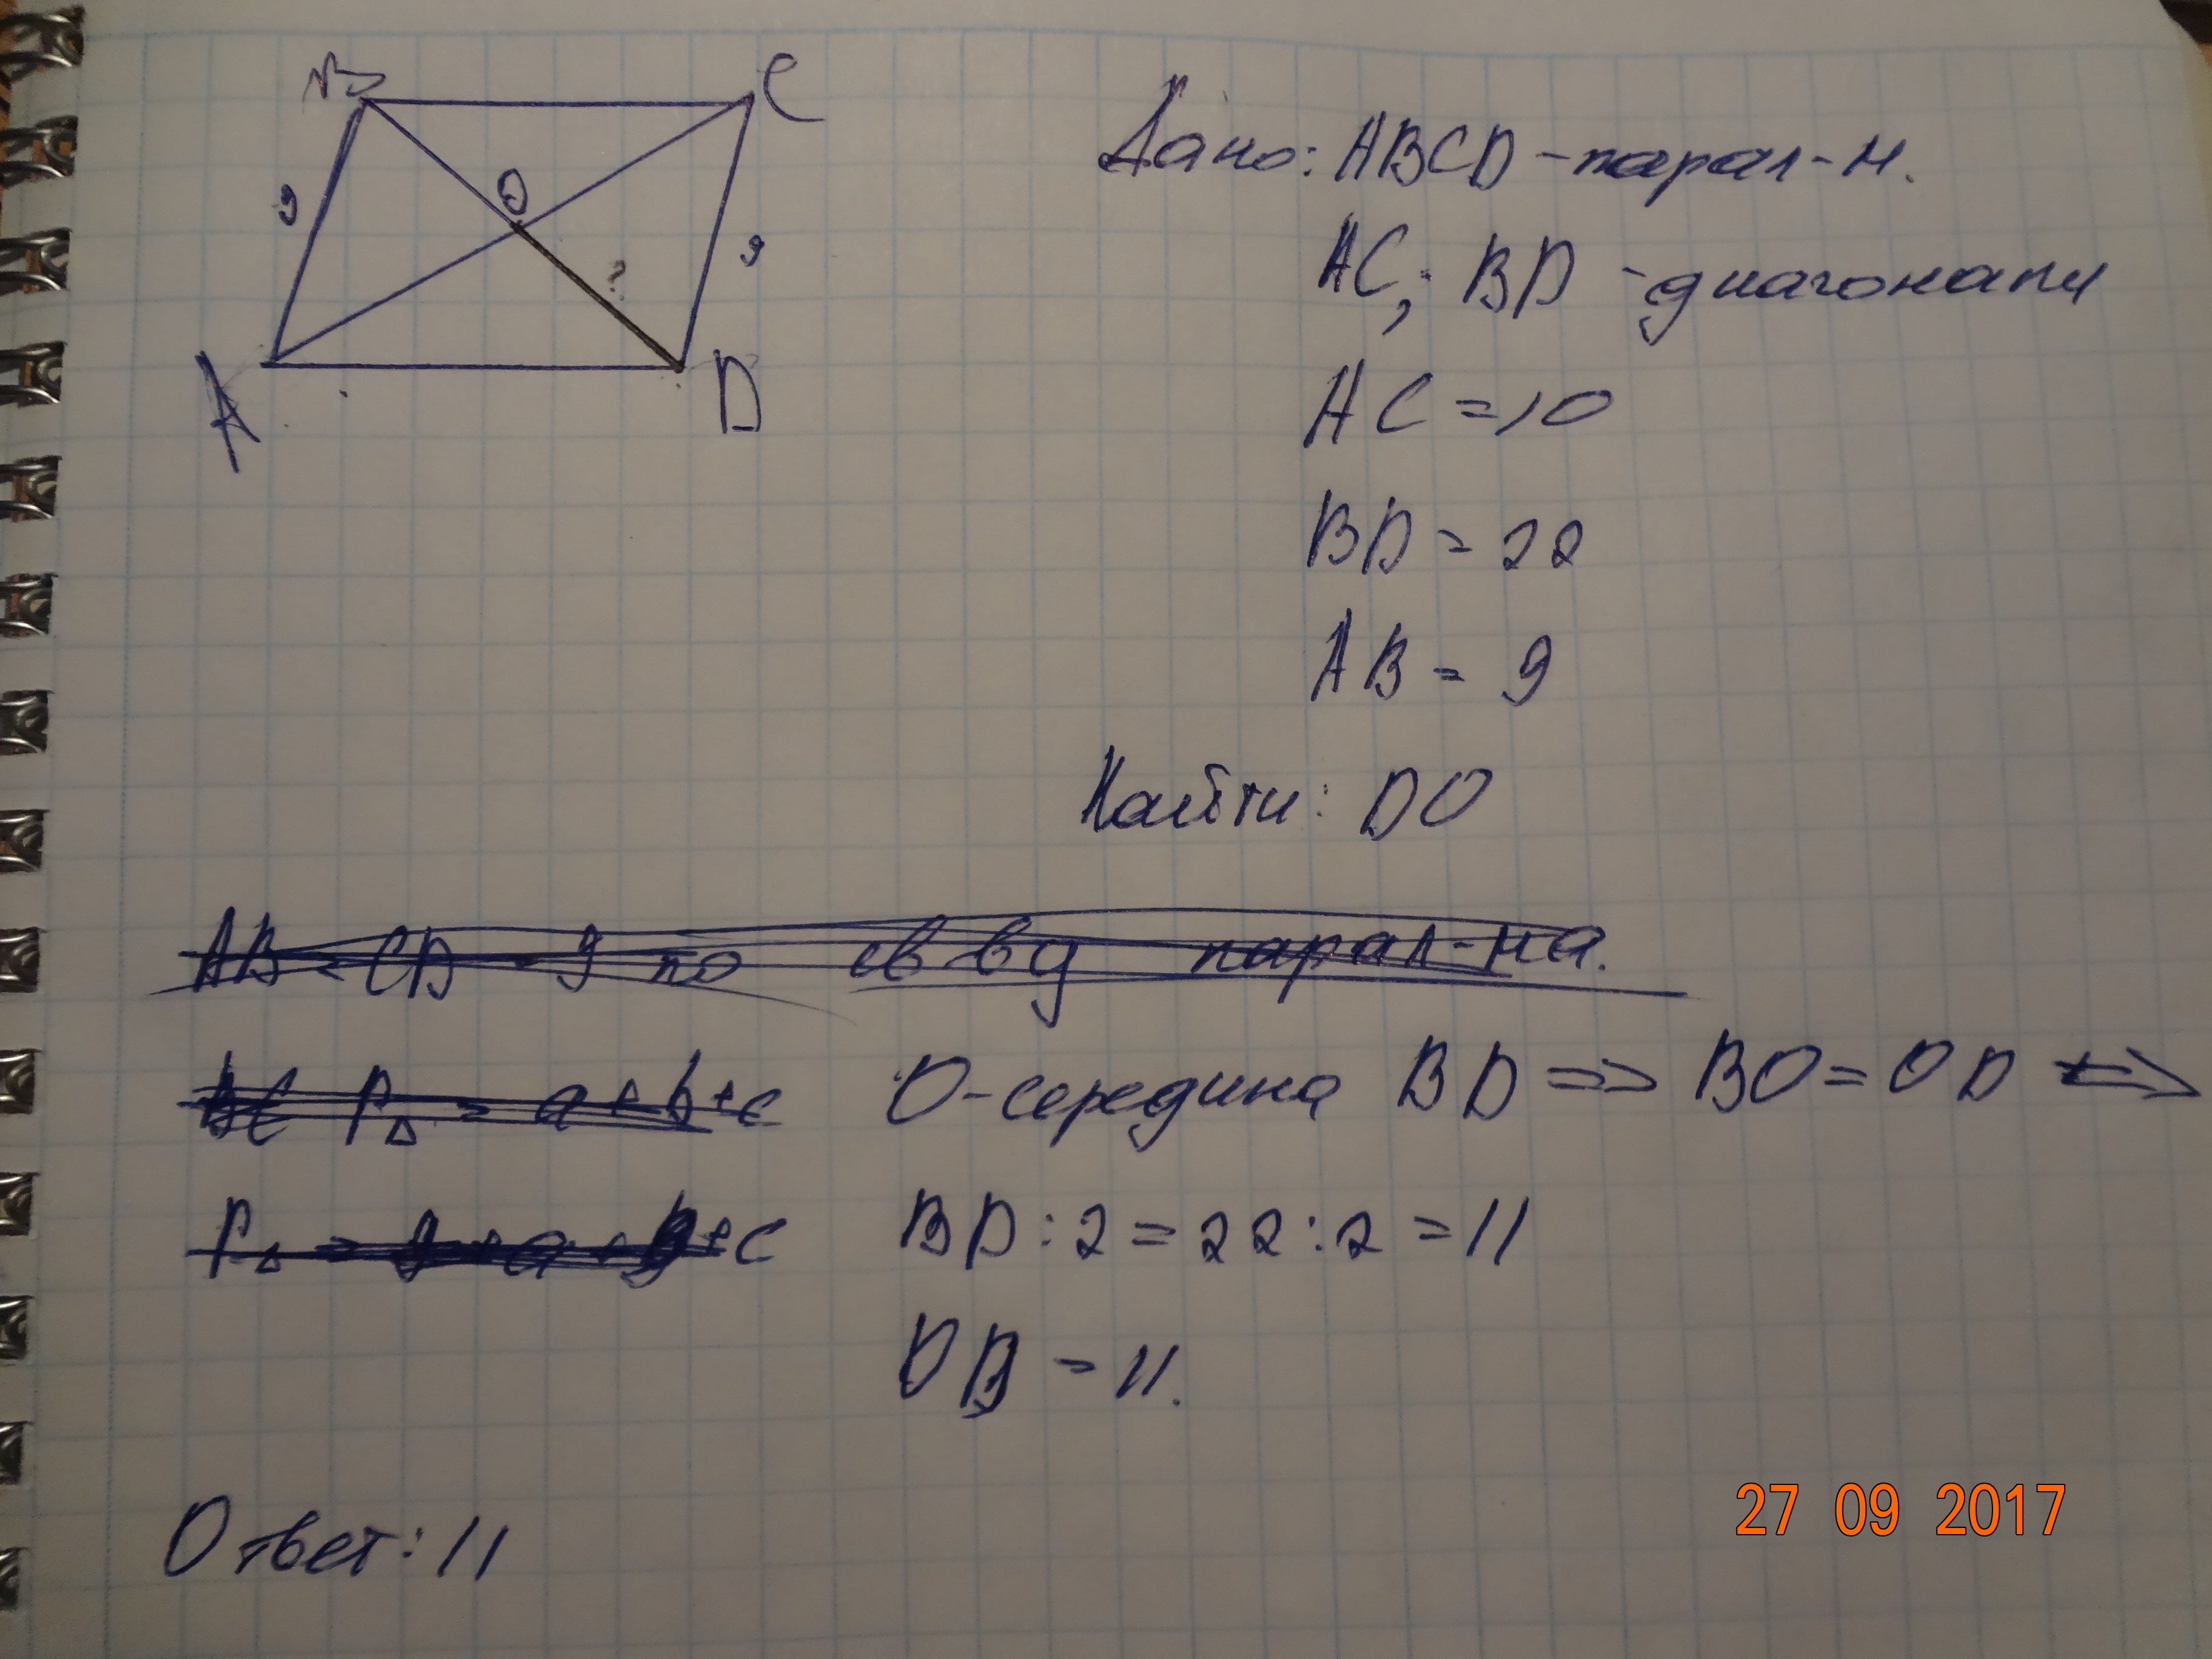 B
C
O
9
?
9
A
D
Дано: ABCD - парал-м.
AC; BD - диагонали
AC = 10
BD = 22
AB = 9
Найти: DO
AB = CD = 9 по парал-ма.
P△ = a + b + c O - середина BD => BO = OD =>
P△ = + a + + c BD : 2 = 22 : 2 = 11
= 11.
Ответ: 11
27 09 2017